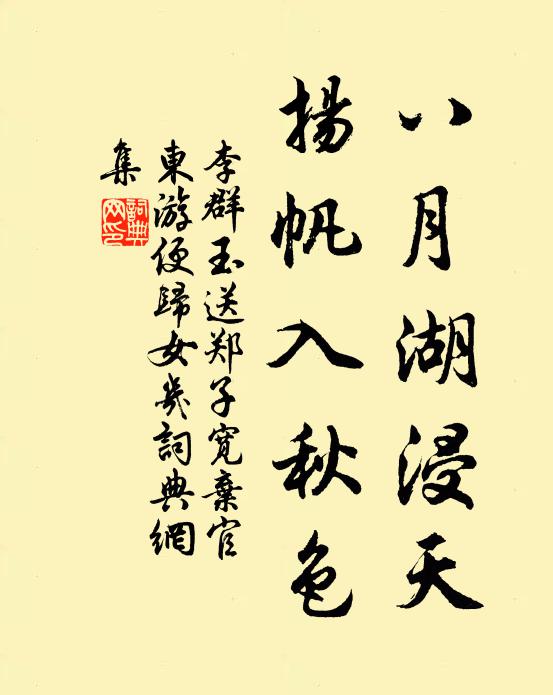 八月湖浸天
揚帆入秋色
李群玉送郑子宽棄官
東游便歸女幾詞典網
集
詞典網印